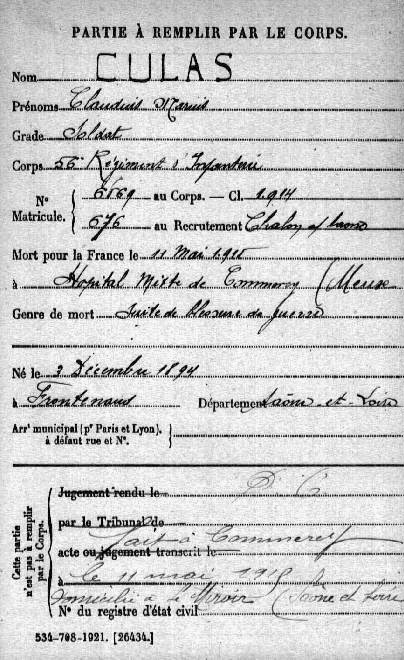 PARTIE À REMPLIR PAR LE CORPS.
Nom CULAS
Prénoms Claudius Marius
Grade Soldat
Corps 56e Régiment d'Infanterie
N° Matricule. { 6569 au Corps. — Cl. 1914
676 au Recrutement Chalon s/ Saône
Mort pour la France le 11 mai 1915
à Hopital Mixte de Commercy (Meuse
Genre de mort Suite de blessure de guerre
Né le 3 Décembre 1894
à Frontenaud Département Saône-et-Loire
Arrt municipal (pr Paris et Lyon), à défaut rue et N°.
Cette partie n'est pas à remplir par le Corps.
Jugement rendu le D. C
par le Tribunal de
fait à Commercy
acte ou jugement transcrit le
à le 11 mai 1915
domicilié à le Miroir (Saône et Loire
N° du registre d'état civil
534-708-1921. [26434.]